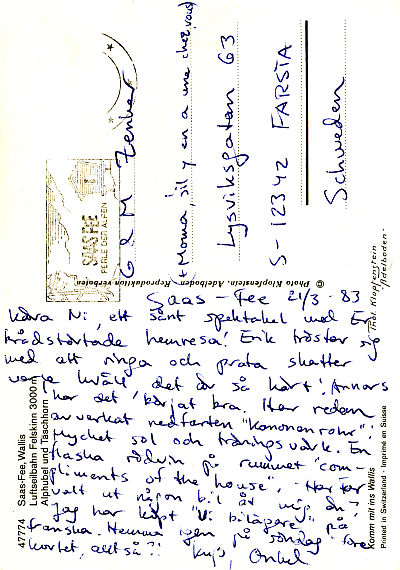 Saas-Fee 21/3 -83
Kära Ni, ett sånt spektakel med Er
brådstörtade hemresa! Erik tröstar sig
med att ringa och prata skatter
varje kväll, det är så kört! Annars
har det börjat bra. Har redan
avverkat nedfarten "kanonenrohr":
mycket sol och träningsvärk. En
flaska rödvin på rummet "com-
pliments of the house". Har Far
valt ut någon bil åt mig än?
Jag har köpt "Vi bilägare" på
franska. Hemma igen på söndag - före
kortet, alltså?! Kyss, Onkel
G & M Zenker
(+ Morma, s'il y en a une chez vous)
Lysviksgatan 63
S-12342 FARSTA
Schweden
SAAS-FEE
PERLE DER ALPEN
© Photo Klopfenstein, Adelboden. Reproduktion verboten
47774 Saas-Fee, Wallis
Luftseilbahn Felskinn 3000 m
Alphubel und Täschhorn
Komm mit ins Wallis
Printed in Switzerland - Imprimé en Suisse
Klopfenstein
Adelboden